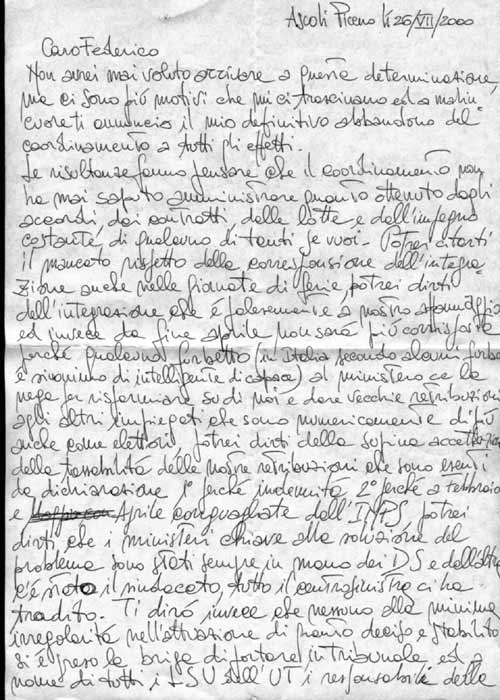 Ascoli Piceno lì 26/VII/2000
Caro Federico
Non avrei mai voluto arrivare a questa determinazione,
ma ci sono più motivi che mi ci trascinano ed a malin
cuore ti annuncio il mio definitivo abbandono del
coordinamento a tutti gli effetti.
Le risultanze fanno pensare che il coordinamento non
ha mai saputo amministrare quanto ottenuto dagli
accordi, dai contratti, dalle lotte e dall'impegno
costante, di qualcuno di tanti se vuoi - Potrei citarti
il mancato rispetto della corresponsione dell'integra
zione anche nelle giornate di ferie, potrei dirti
dell'integrazione che è palesemente a nostro
ed invece da fine aprile non sarà più corrisposta
perché qualche furbetto (in Italia secondo alcuni furbo
è sinonimo di intelligente di capace) al ministero ce la
nega per risparmiare su di noi e dare vecchie retribuzioni
agli altri impiegati che sono numericamente di più
anche come elettori, potrei dirti della supina accettazione
della tassabilità delle nostre retribuzioni che sono esenti
da dichiarazione 1° perché indennità 2° perché a febbraio
e Aprile conguagliate dall'INPS, potrei
dirti, che i ministeri chiave alla soluzione del
problema sono stati sempre in mano dei DS e dall'altra
c'è stato il sindacato, tutto il centrosinistra ci ha
tradito. Ti dirò invece che nessuno alla minima
irregolarità nell'attuazione di quanto deciso e stabilito
si è preso la briga di portare in tribunale ed a
nome di tutti i LSU dell'UT i responsabili della